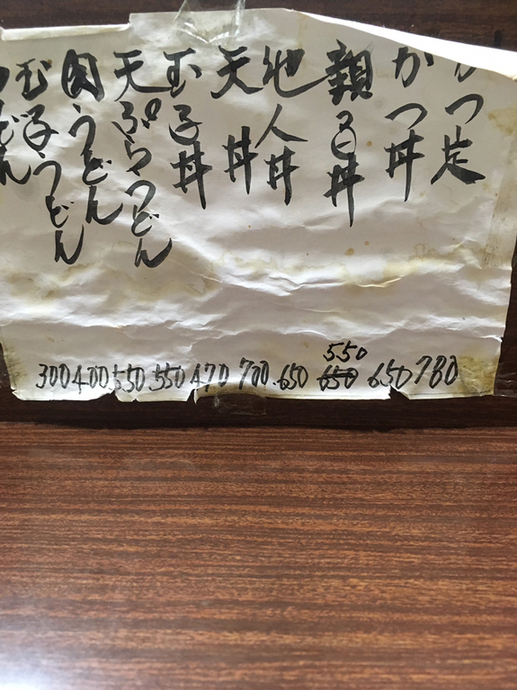 かつ定
かつ丼
親子丼
他人丼
天丼
玉子丼
天ぷらうどん
肉うどん
玉子うどん
うどん
780
650
550
650
650
700
470
550
550
400
300